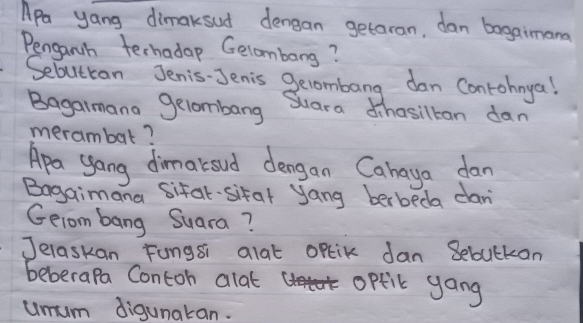 Apa yang dimaksud dengan getaran, dan bagaimana
Pengaruh terhadap Gelombang?
Sebutkan Jenis-Jenis gelombang dan Contohnya!
Bagaimana gelombang Suara dihasilkan dan
merambat?
Apa yang dimaksud dengan Cahaya dan
Bagaimana Sifat-sifat yang berbeda dari
Gelombang Suara?
Jelaskan Fungsi alat optik dan Sebutkan
beberapa Contoh alat optik yang
umum digunakan.